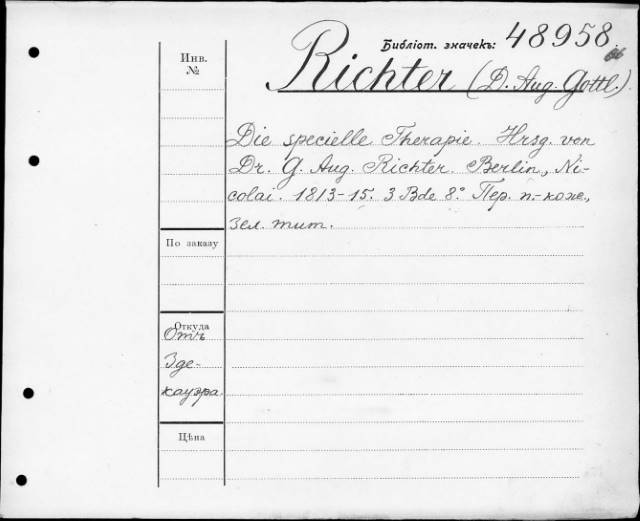 Библіот. значекъ: 48958
Инв.
№
Richter (D. Aug. Gottl.).
Die specielle Therapie. Hrsg. von
Dr. G. Aug. Richter. Berlin, Ni-
colai. 1813-15. 3 Bde 8°. Пер. п.-коже.,
Зел. тит.
По заказу
Откуда
Отъ
Зде-
кауэра
Цѣна